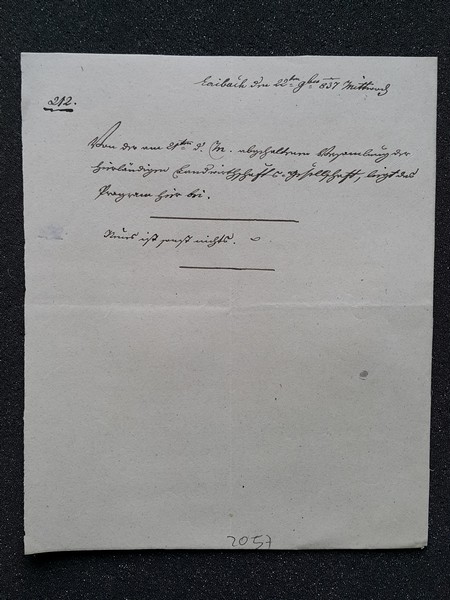 Laibach den 22ten 9ber 837 Mittwoch
212.
Von der am 21ten d. M. abgehaltenen Versamlung der
hierländigen Landwirthschafts-Gesellschaft, liegt das
Program hier bei.
Neues ist sonst nichts.
2057